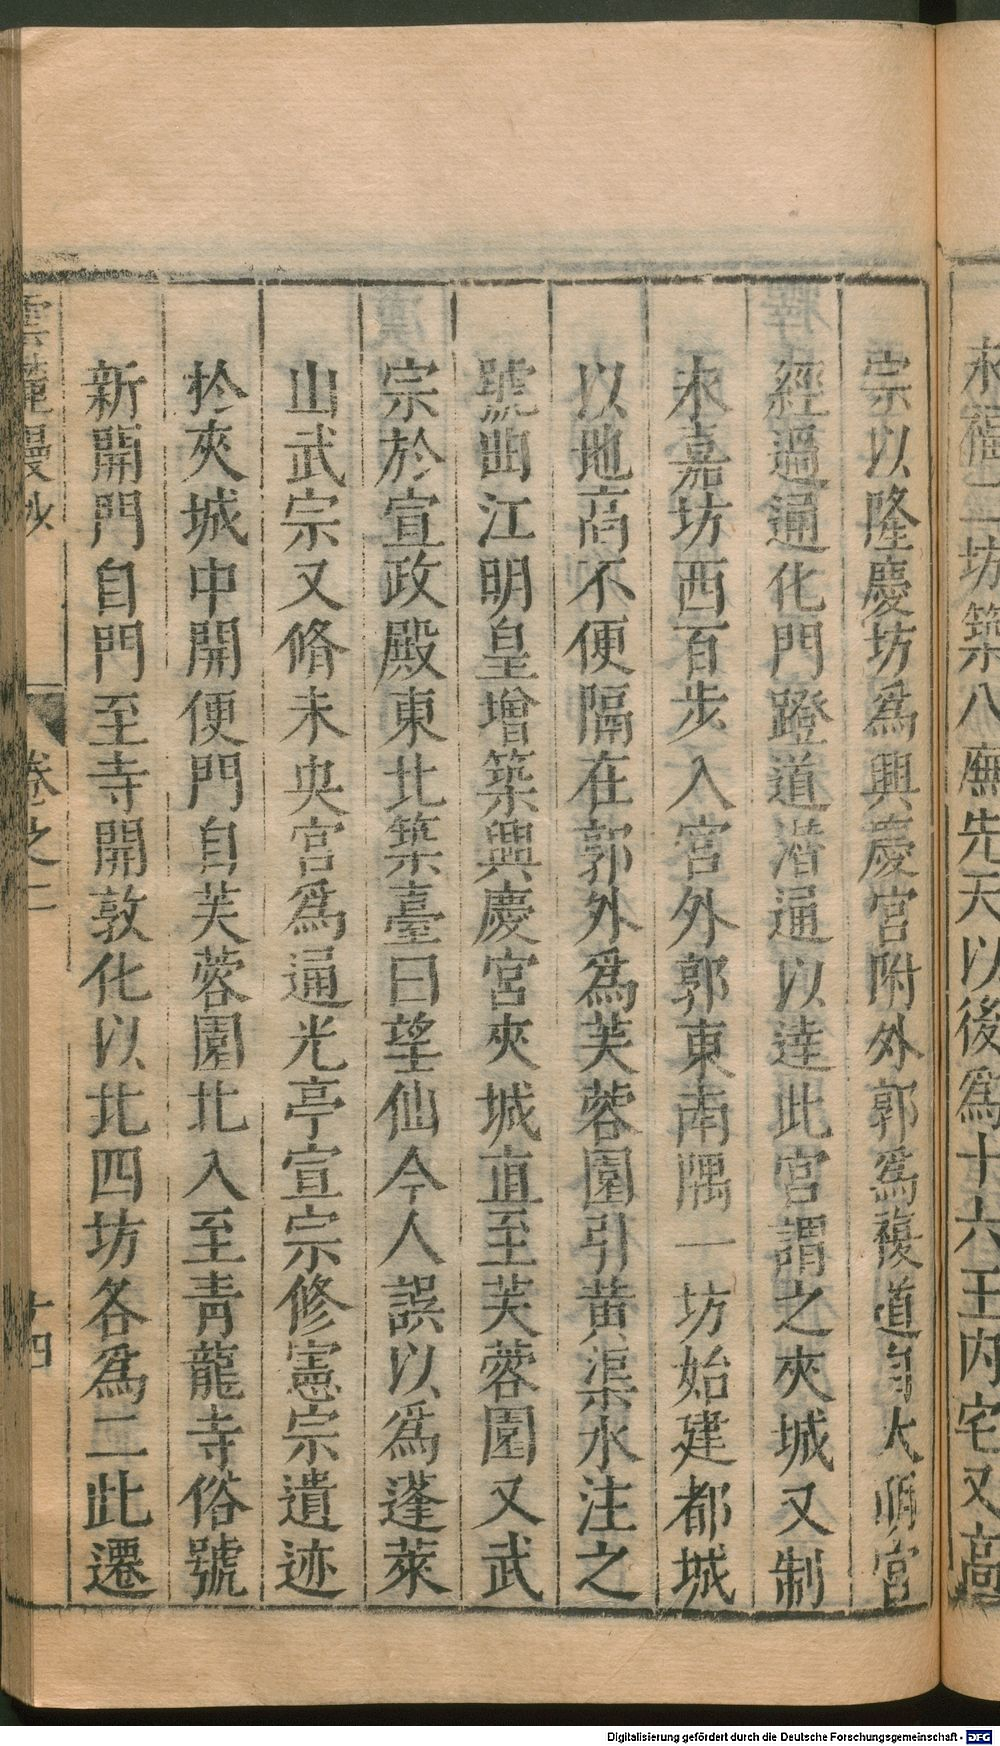 永福二坊築八廡先天以後爲十六王内宅又高
宗以隆慶坊爲興慶宮附外郭爲複道自大明宮
經過通化門蹬道潛通以達此宮謂之夾城又制
永嘉坊西百步入宮外郭東南隅一坊始建都城
以地高不便隔在郭外爲芙蓉園引黄渠水注之
號曲江明皇增築興慶宮夾城直至芙蓉園又武
宗於宣政殿東北築臺曰望仙今人誤以爲蓬萊
山武宗又脩未央宮爲通光亭宣宗修憲宗遺迹
扵夾城中開便門自芙蓉園北入至青龍寺俗號
新開門自門至寺開敦化以北四坊各爲二此遷
雲麓漫抄 卷之二 十四
Digitalisierung gefördert durch die Deutsche Forschungsgemeinschaft - DFG